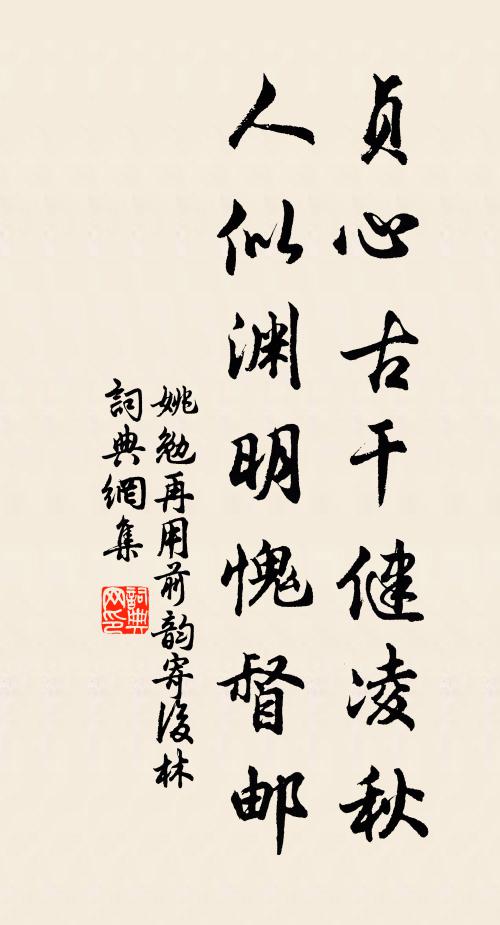 贞心古干健凌秋
人似渊明愧督邮
姚勉再用前韵寄后林
詞典網集
詞典网印